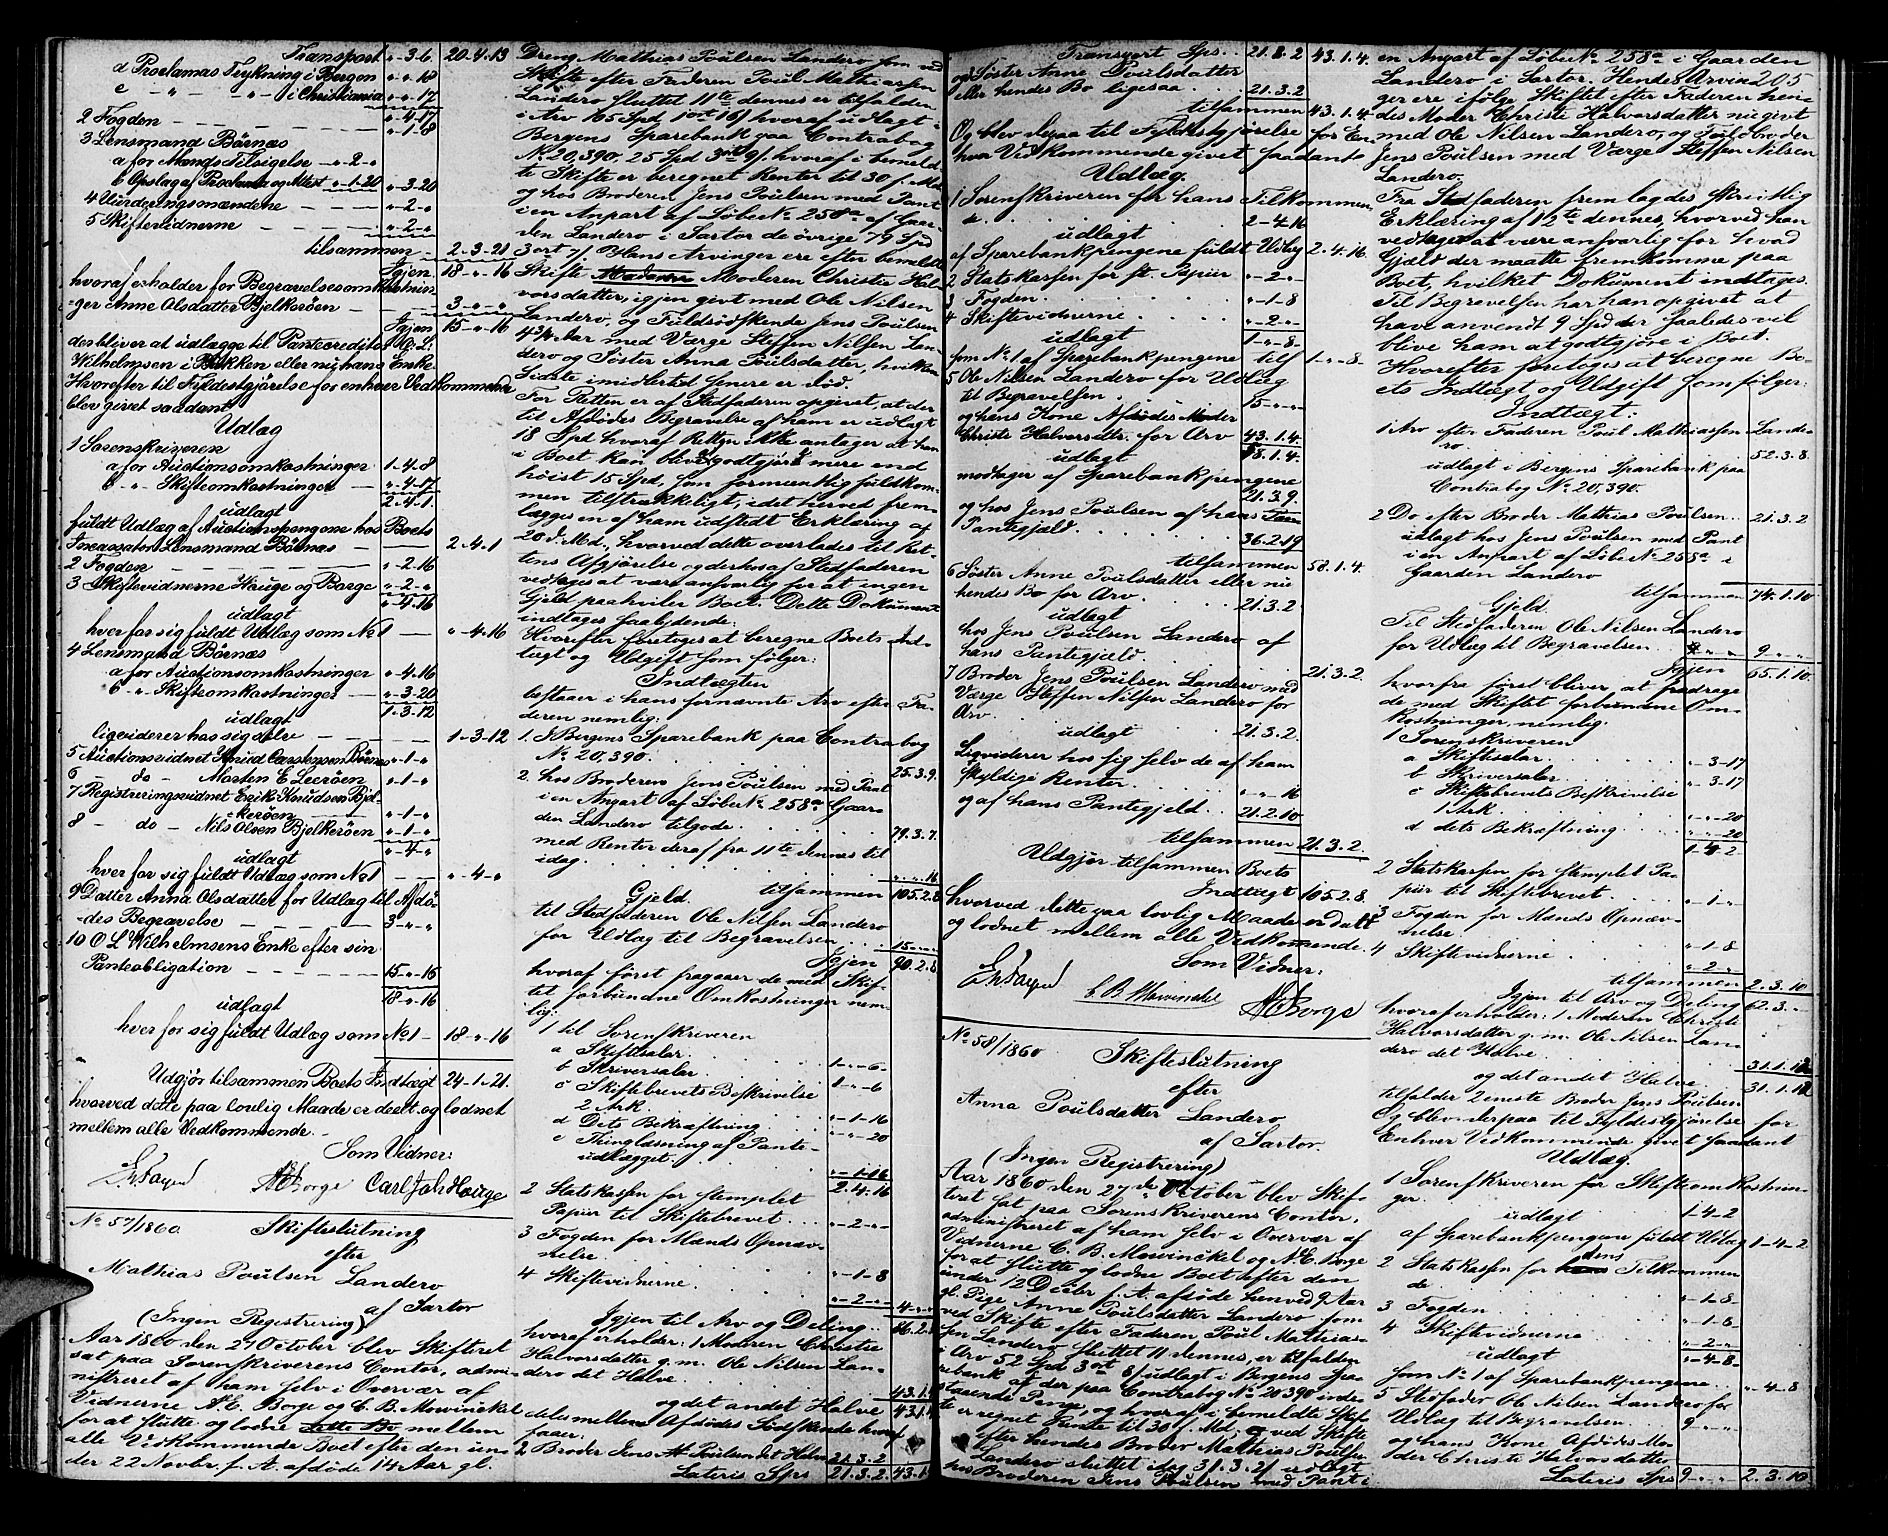 Transport „-3-6 20-4-13
d Proclamas Trykning i Bergen „-„-18
e „ - „ - i Christiania „-„-17
„-4-17
2 Fogden „-1-8
3 Lensmand Börnæs
a for Mænds Tilsigelse „-2-„
b Opslag af Proclama og Attest „-1-20 „-3-20
4 Vurderingsmændene „-2-„
5 Skiftevidnerne „-2-„
tilsammen 2-3-21
Igjen 18-„-16
hvoraf erholder for Begravelsesomkostnin
ger Anne Olsdatter Bjelkeröen 3-„-„
Igjen 15-„-16
der bliver at udlægge til Pantecreditor O. L.
Wilhelmsen i Bakken eller nu hans Enke.
Hvorefter til Fyldestgjörelse for enhver Vedkommende
blev givet saadant
Udlæg
1 Sorenskriveren
a for Auctionsomkostninger 1-4-8
b - „ - Skifteomkostninger „-4-17
2-4-1.
udlagt
fuldt Udlæg af Auctionspengene hos Boets
Incassator Lensmand Börnæs 2-4-1
2 Fogden „-2-16
3 Skiftevidnerne Hauge og Borge „-2-„
„-4-16
udlagt
hver for sig fuldt Udlæg som No 1 „-4-16
4 Lensmand Börnæs
a for Auctionsomkostninger „-4-16
b - „ - Skifteomkostninger „-3-20
1-3-12
udlagt
ligviderer hos sig selv 1-3-12
5 Auctionsvidnet Knud Carstensen Börnæs „-1-„
6 - do - Morten E. Leeröen „-1-„
7 Registreringsvidnet Erik Knudsen Bjel-
keröen „-1-„
8 - do - Nils Olsen Bjelkeröen „-1-„
„-4-„
udlagt
hver for sig fuldt Udlæg som No 1 „-4-„
9 Datter Anna Olsdatter for Udlæg til Afdö-
des Begravelse 3-„-„
10 O L Wilhelmsens Enke efter sin
Panteobligation 15-„-16
18-„-16
udlagt
hver for sig fuldt Udlæg som No 1 - 18-„-16
Udgjör tilsammen Boets Indtægt 24-1-21.
hvorved dette paa lovlig Maade er deelt og lodnet
mellem alle Vedkommende.
Som Vidner:
AC Borge Carl Joh Hauge
No 57/1860 Skifteslutning
efter
Mathias Poulsen Landero
af Sartor
(Ingen Registrering)
Aar 1860 den 27 October blev Skifteret
sat paa Sorenskriverens Contor, admi-
nistreret af ham selv i Overvær af
Vidnerne A. C. Borge og C. B. Mowinckel
for at slutte og lodne dette Bo mellem
alle Vedkommende Boet efter den un-
der 22 Novbr. f. A. afdöde 14 Aar gl.
Dreng Mathias Poulsen Landero som ved
Skifte efter Faderen Poul Mathiassen
Landero sluttet 11te dennes er tilfalden
i Arv 105 Spd 1 ort 16 s hvoraf udlagt i
Bergens Sparebank paa Contrabog
No 20,390. 25 Spd 3 ort 9 s. hvoraf i bemeld-
te Skifte er beregnet Renter til 30 f. Md.
og hos Broderen Jens Poulsen med Pant
i en Anpart af Löbe No 258a af Gaar-
den Landero i Sartor de övrige 79 Spd
3 ort 7 s. Hans Arvinger ere efter bemeldte
Skifte Moderen Christie Hal-
vorsdatter, igjen givt med Ole Nilsen
Landero, og Fuldsödskende Jens Poulsen
4 3/4 Aar med Værge Steffen Nilsen Lan-
dero og Söster Anna Poulsdatter, hvilken
Sidste imidlertid senere er död.
For Retten er af Stedfaderen opgivet, at der
til Afdödes Begravelse af ham er udlagt
18 Spd hvoraf Retten ikke antager at han
i Boet kan blive godtgjort mere end
höist 15 Spd, som formeentlig fuldkom-
men tilstrækkeligt, idet herved frem-
lægges en af ham udstedt Erklæring af
20 d. Md., hvorved dette overlades til Ret-
tens Afgjörelse og derhos af Stedfaderen
vedtages at være ansvarlig for at ingen
Gjeld paahviler Boet. Dette Dokument
indtages saalydende:
Hvorefter foretoges at beregne Boets Ind-
tægt og Udgift som fölger:
Indtægten
bestaaer i hans fornævnte Arv efter Fa-
deren nemlig:
1. I Bergens Sparebank paa Contrabog
No 20,390. 25.3.9.
2. hos Broderen Jens Poulsen med Pant
i en Anpart af Löbe No 258a Gaar-
den Landero tilgode. 79.3.7.
med Renter deraf fra 11te dennes til
idag. „.„.16
tilsammen 105.2.8
Gjeld.
til Stedfaderen Ole Nilsen Landero
for Udlæg til Begravelsen 15-„-„
Igjen 90.2.8
hvoraf först fragaaer de med Skif-
tet forbundne Omkostninger nem-
lig:
1 til Sorenskriveren
a Skiftesalar. 1-„-6-
b Skriversalar. 1-„-6
c Skiftebrevets Beskrivelse
2 Ark. „-1-16
d Dets Bekræftning. „-„-20
e Thinglæsning af Pante-
udlægget. „-1-16
2.4.16
2 Statskassen for Stemplet
Papiir til Skiftebrevet. „-2-„
3 Fogden for Mænds Opnæv-
nelse. „-1-8
4 Skiftevidnerne. „-2-„ 4-„-„
Igjen til Arv og Deling. 86.2.8
hvoraf erholder: 1 Moderen Christie
Halvorsdatter g. m. Ole Nilsen Lan-
dero det Halve. 43.1.4
og det andet Halve 43.1.4
deles mellem Afdödes Södskende hvoraf
faaer:
2 Broder Jens Poulsen det Halve 21.3.2
Lateris Sps 21.3.2. 43.1.4
Transport Sps. 21.3.2 43.1.4.
og Söster Anne Poulsdatter
eller hendes Bo ligesaa. 21.3.2
tilsammen 43.1.4.
Og blev derpaa til Fyldestgjörelse for En-
hver Vedkommende givet saadanto
Udlæg.
1 Sorenskriveren for hans Tilkommen
de. 2-4-16
udlagt
af Sparebankpengene fuldt Udlæg 2.4.16.
2 Statskassen for st. Papiir „-2-„
3 Fogden. „-1-8
4 Skiftevidnerne. „-2-„
1-„-8.
udlagt
som No 1 af Sparebankpengene tils 1-„-8.
5 Ole Nilsen Landero for Udlæg
til Begravelsen. 15-„-„
og hans Kone Afdödes Moder
Christie Halvorsdtr. for Arv 43.1.4.
58.1.4.
udlagt
modtager af Sparebankpengene 21.3.9.
og hos Jens Poulsen af hans
Pantegjæld. 36.2.19
tilsammen 58.1.4.
6 Söster Anne Poulsdatter eller nu
hendes Bo for Arv. 21.3.2
udlagt
hos Jens Poulsen Landero af
hans Pantegjæld. 21.3.2.
7 Broder Jens Poulsen Landero med
Værge Steffen Nilsen Landero for
Arv. 21.3.2.
udlagt
Liqviderer hos sig selv de af ham
skyldige Renter. „-„-16
og af hans Pantegjeld. 21.2.10
tilsammen 21.3.2.
Udgjör tilsammen Boets
Indtægt 105.2.8.
hvorved dette paa lovlig Maade er delt
og lodnet mellem alle Vedkommende.
Som Vidner:
C. B. Mowinckel AC Borge
No 58/1860. Skifteslutning
efter
Anna Poulsdatter Landero
af Sartor.
(Ingen Registrering)
Aar 1860 den 27de October blev Skif-
teret sat paa Sorenskriverens Contor,
administreret af ham selv i Overvær af
Vidnerne C. B. Mowinckel og A. C. Borge
for at slutte og lodne Boet efter den
under 12 Decbr f. A. afdöde henved 9 Aar
gl. Pige Anne Poulsdatter Landero som
ved Skifte efter Faderen Poul Mathias-
sen Landero sluttet 11 dennes, er tilfalden
i Arv 52 Spd 3 ort 8 s udlagt i Bergens Spa-
rebank af der paa Contrabog No 20390 inde-
staaende Penge, og hvoraf i bemeldte Skif-
te er regnet Rente til 30 f. Md; og ved Skifte
efter hendes Broder Mathias Poulsen
Landero sluttet idag 31.3.21 udlagt
hos Broderen Jens Poulsen med Pant i
en Anpart af Löbe No 258a i Gaarden
Landero i Sartor. Hendes Arvin
ger ere ifölge Skiftet efter Faderen hen-
des Moder Christie Halvorsdatter nu givt
med Ole Nilsen Landero, og Fuldbroder
Jens Poulsen med Værge Steffen Nilsen
Landero.
Fra Stedfaderen fremlagdes skriftlig
Erklæring af 12te dennes, hvorved han
vedtager at være ansvarlig for hvad
Gjæld der maatte fremkomme paa
Boet, hvilket Dokument indtages.
Til Begravelsen har han opgivet at
have anvendt 9 Spd der saaledes vil
blive ham at godtgjöre i Boet.
Hvorefter foretoges at beregne Bo-
ets Indtægt og Udgift som fölger:
Indtægt:
1 Arv efter Faderen Poul Mathiassen Lande-
ro. 52.3.8.
udlagt i Bergens Sparebank paa
Contrabog No 20,390.
2 Do efter Broder Mathias Poulsen. 21.3.2
udlagt hos Jens Poulsen med Pant
i en Anpart af Löbe No 258a i
Gaarden Landero
tilsammen 74.1.10
Gjeld.
Til Stedfaderen Ole Nilsen Landero
for Udlæg til Begravelsen. 9-„-„
Igjen 65.1.10.
hvorfra först bliver at fradrage
de med Skiftet forbundne Om-
kostninger, nemlig:
1 Sorenskriveren
a Skiftesalar. „-3-17
b Skriversalar. „-3-17
c Skiftebrevets Beskrivelse
1 Ark. „-„-20
d dets Bekræftning. „-„-20
1-4-2-
2 Statskassen for Stemplet Pa-
piir til Skiftebrevet. „-1-„
3 Fogden for Mænds Opnæv-
nelse. „-1-8
4 Skiftevidnerne. „-2-„
tilsammen 2.3.10
Igjen til Arv og Deling 62.3.„
hvoraf erholder: 1 Moderen Christie
Halvorsdatter g. m. Ole Nilsen Lan-
dero det Halve. 31.1.12
og det andet Halve. 31.1.12
tilfalder 2 eneste Broder Jens Poulsen
Og blev derpaa til Fyldestgjörelse for
Enhver Vedkommende givet saadant
Udlæg.
1 Sorenskriveren for Skifteomkostnin-
ger. 1-4-2
udlagt
af Sparebankpengene fuldt Udlæg 1-4-2
2 Statskassen for dens Tilkommen
de. „-1-8-
3 Fogden. „-1-8-
4 Skiftevidnerne „-2-„
„-4-8-
udlagt
som No 1 af Sparebankpengene. „-4-8
5 Stedfader Ole Nilsen Landero for
Udlæg til Begravelsen. 9-„-„
og hans Kone Afdödes Mo-
der Christie Halvorsdatter
Lateris Sps 9-„-„ 2.3.10